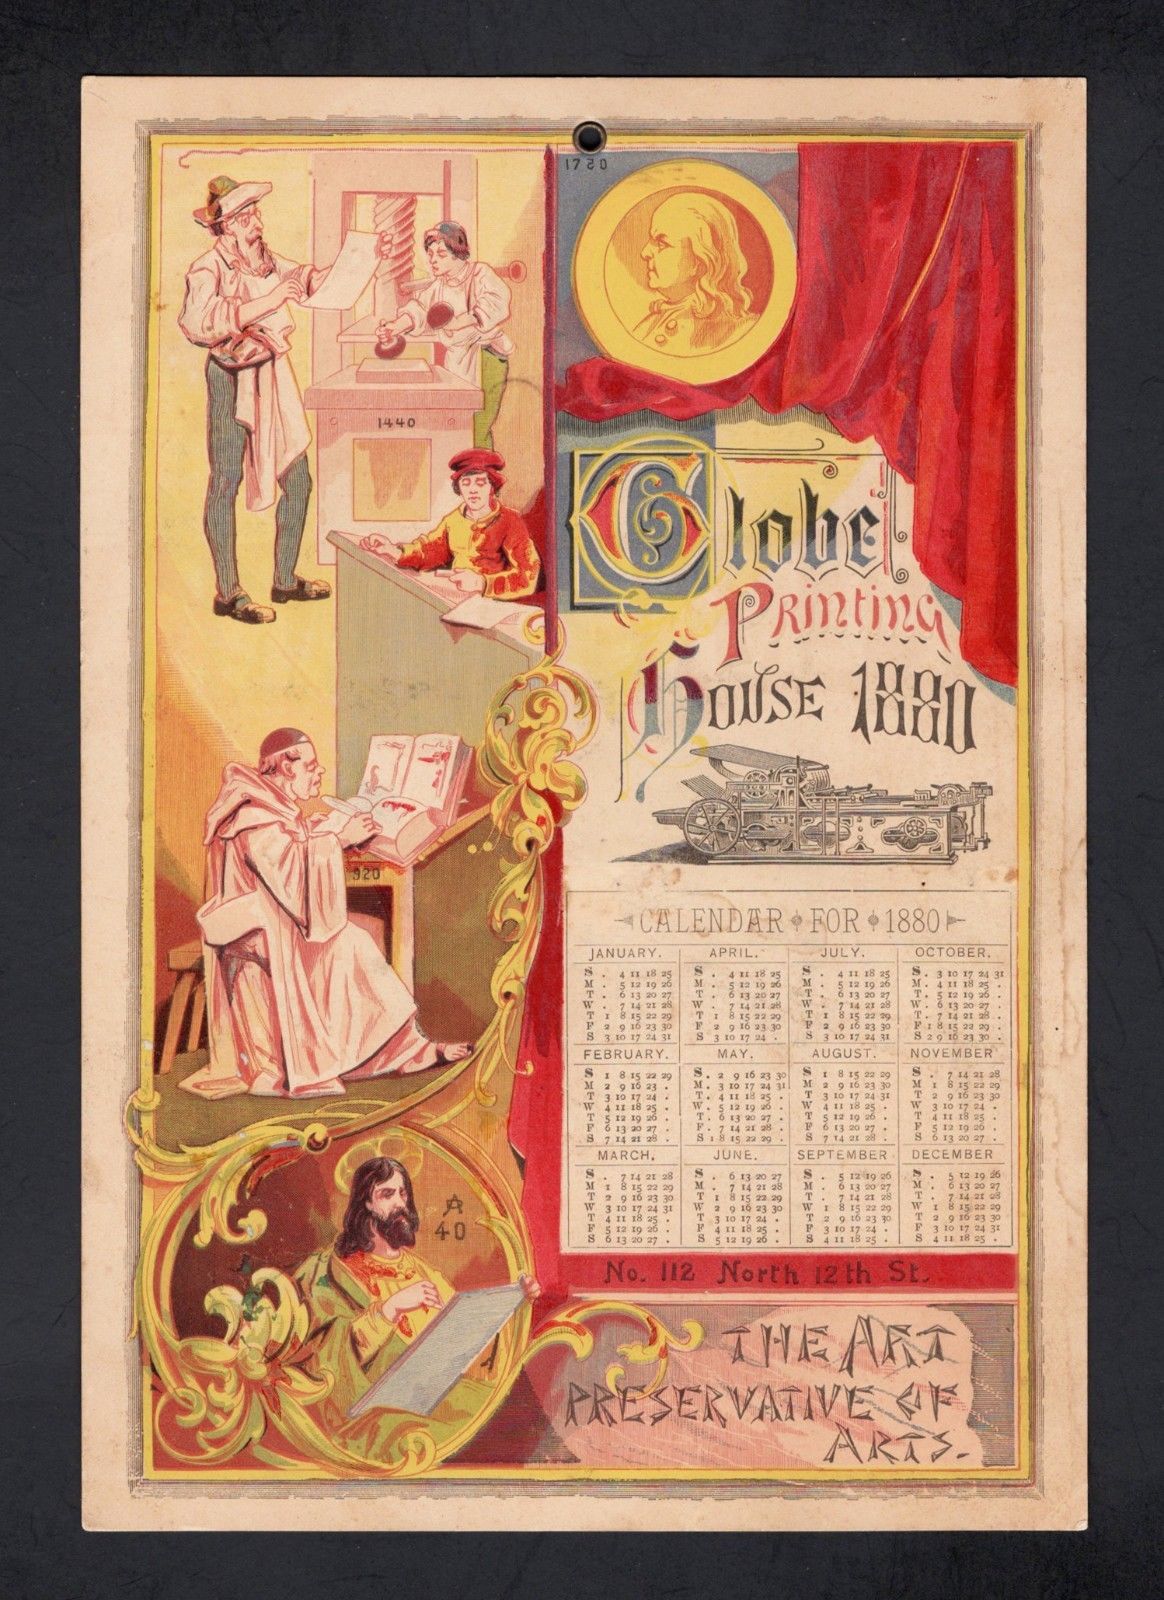 1720
1440
Globe
Printing
House 1880
920
CALENDAR FOR 1880
JANUARY.
S . 4 11 18 25
M . 5 12 19 26
T . 6 13 20 27
W . 7 14 21 28
T 1 8 15 22 29
F 2 9 16 23 30
S 3 10 17 24 31
APRIL.
S . 4 11 18 25
M . 5 12 19 26
T . 6 13 20 27
W . 7 14 21 28
T 1 8 15 22 29
F 2 9 16 23 30
S 3 10 17 24 .
JULY.
S . 4 11 18 25
M . 5 12 19 26
T . 6 13 20 27
W . 7 14 21 28
T 1 8 15 22 29
F 2 9 16 23 30
S 3 10 17 24 31
OCTOBER.
S . 3 10 17 24 31
M . 4 11 18 25 .
T . 5 12 19 26 .
W . 6 13 20 27 .
T . 7 14 21 28 .
F 1 8 15 22 29 .
S 2 9 16 23 30 .
FEBRUARY.
S 1 8 15 22 29
M 2 9 16 23 .
T 3 10 17 24 .
W 4 11 18 25 .
T 5 12 19 26 .
F 6 13 20 27 .
S 7 14 21 28 .
MAY.
S . 2 9 16 23 30
M . 3 10 17 24 31
T . 4 11 18 25 .
W . 5 12 19 26 .
T . 6 13 20 27 .
F . 7 14 21 28 .
S 1 8 15 22 29 .
AUGUST.
S 1 8 15 22 29
M 2 9 16 23 30
T 3 10 17 24 31
W 4 11 18 25 .
T 5 12 19 26 .
F 6 13 20 27 .
S 7 14 21 28 .
NOVEMBER
S . 7 14 21 28
M 1 8 15 22 29
T 2 9 16 23 30
W 3 10 17 24 .
T 4 11 18 25 .
F 5 12 19 26 .
S 6 13 20 27 .
MARCH.
S . 7 14 21 28
M 1 8 15 22 29
T 2 9 16 23 30
W 3 10 17 24 31
T 4 11 18 25 .
F 5 12 19 26 .
S 6 13 20 27 .
JUNE.
S . 6 13 20 27
M . 7 14 21 28
T 1 8 15 22 29
W 2 9 16 23 30
T 3 10 17 24 .
F 4 11 18 25 .
S 5 12 19 26 .
SEPTEMBER
S . 5 12 19 26
M . 6 13 20 27
T . 7 14 21 28
W 1 8 15 22 29
T 2 9 16 23 30
F 3 10 17 24 .
S 4 11 18 25 .
DECEMBER
S . 5 12 19 26
M . 6 13 20 27
T . 7 14 21 28
W 1 8 15 22 29
T 2 9 16 23 30
F 3 10 17 24 31
S 4 11 18 25 .
40
No. 112 North 12th St.
THE ART
PRESERVATIVE OF
ARTS.